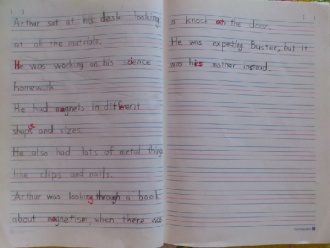 Arthur sat at his desk looking
at all the materials.
He was working on his science
homework.
He had magnets in different
shapes and sizes.
He also had lots of metal things
like clips and nails.
Arthur was looking through a book
about magnetism, when there was
a knock on the door.
He was expecting Buster, but it
was his mother instead.